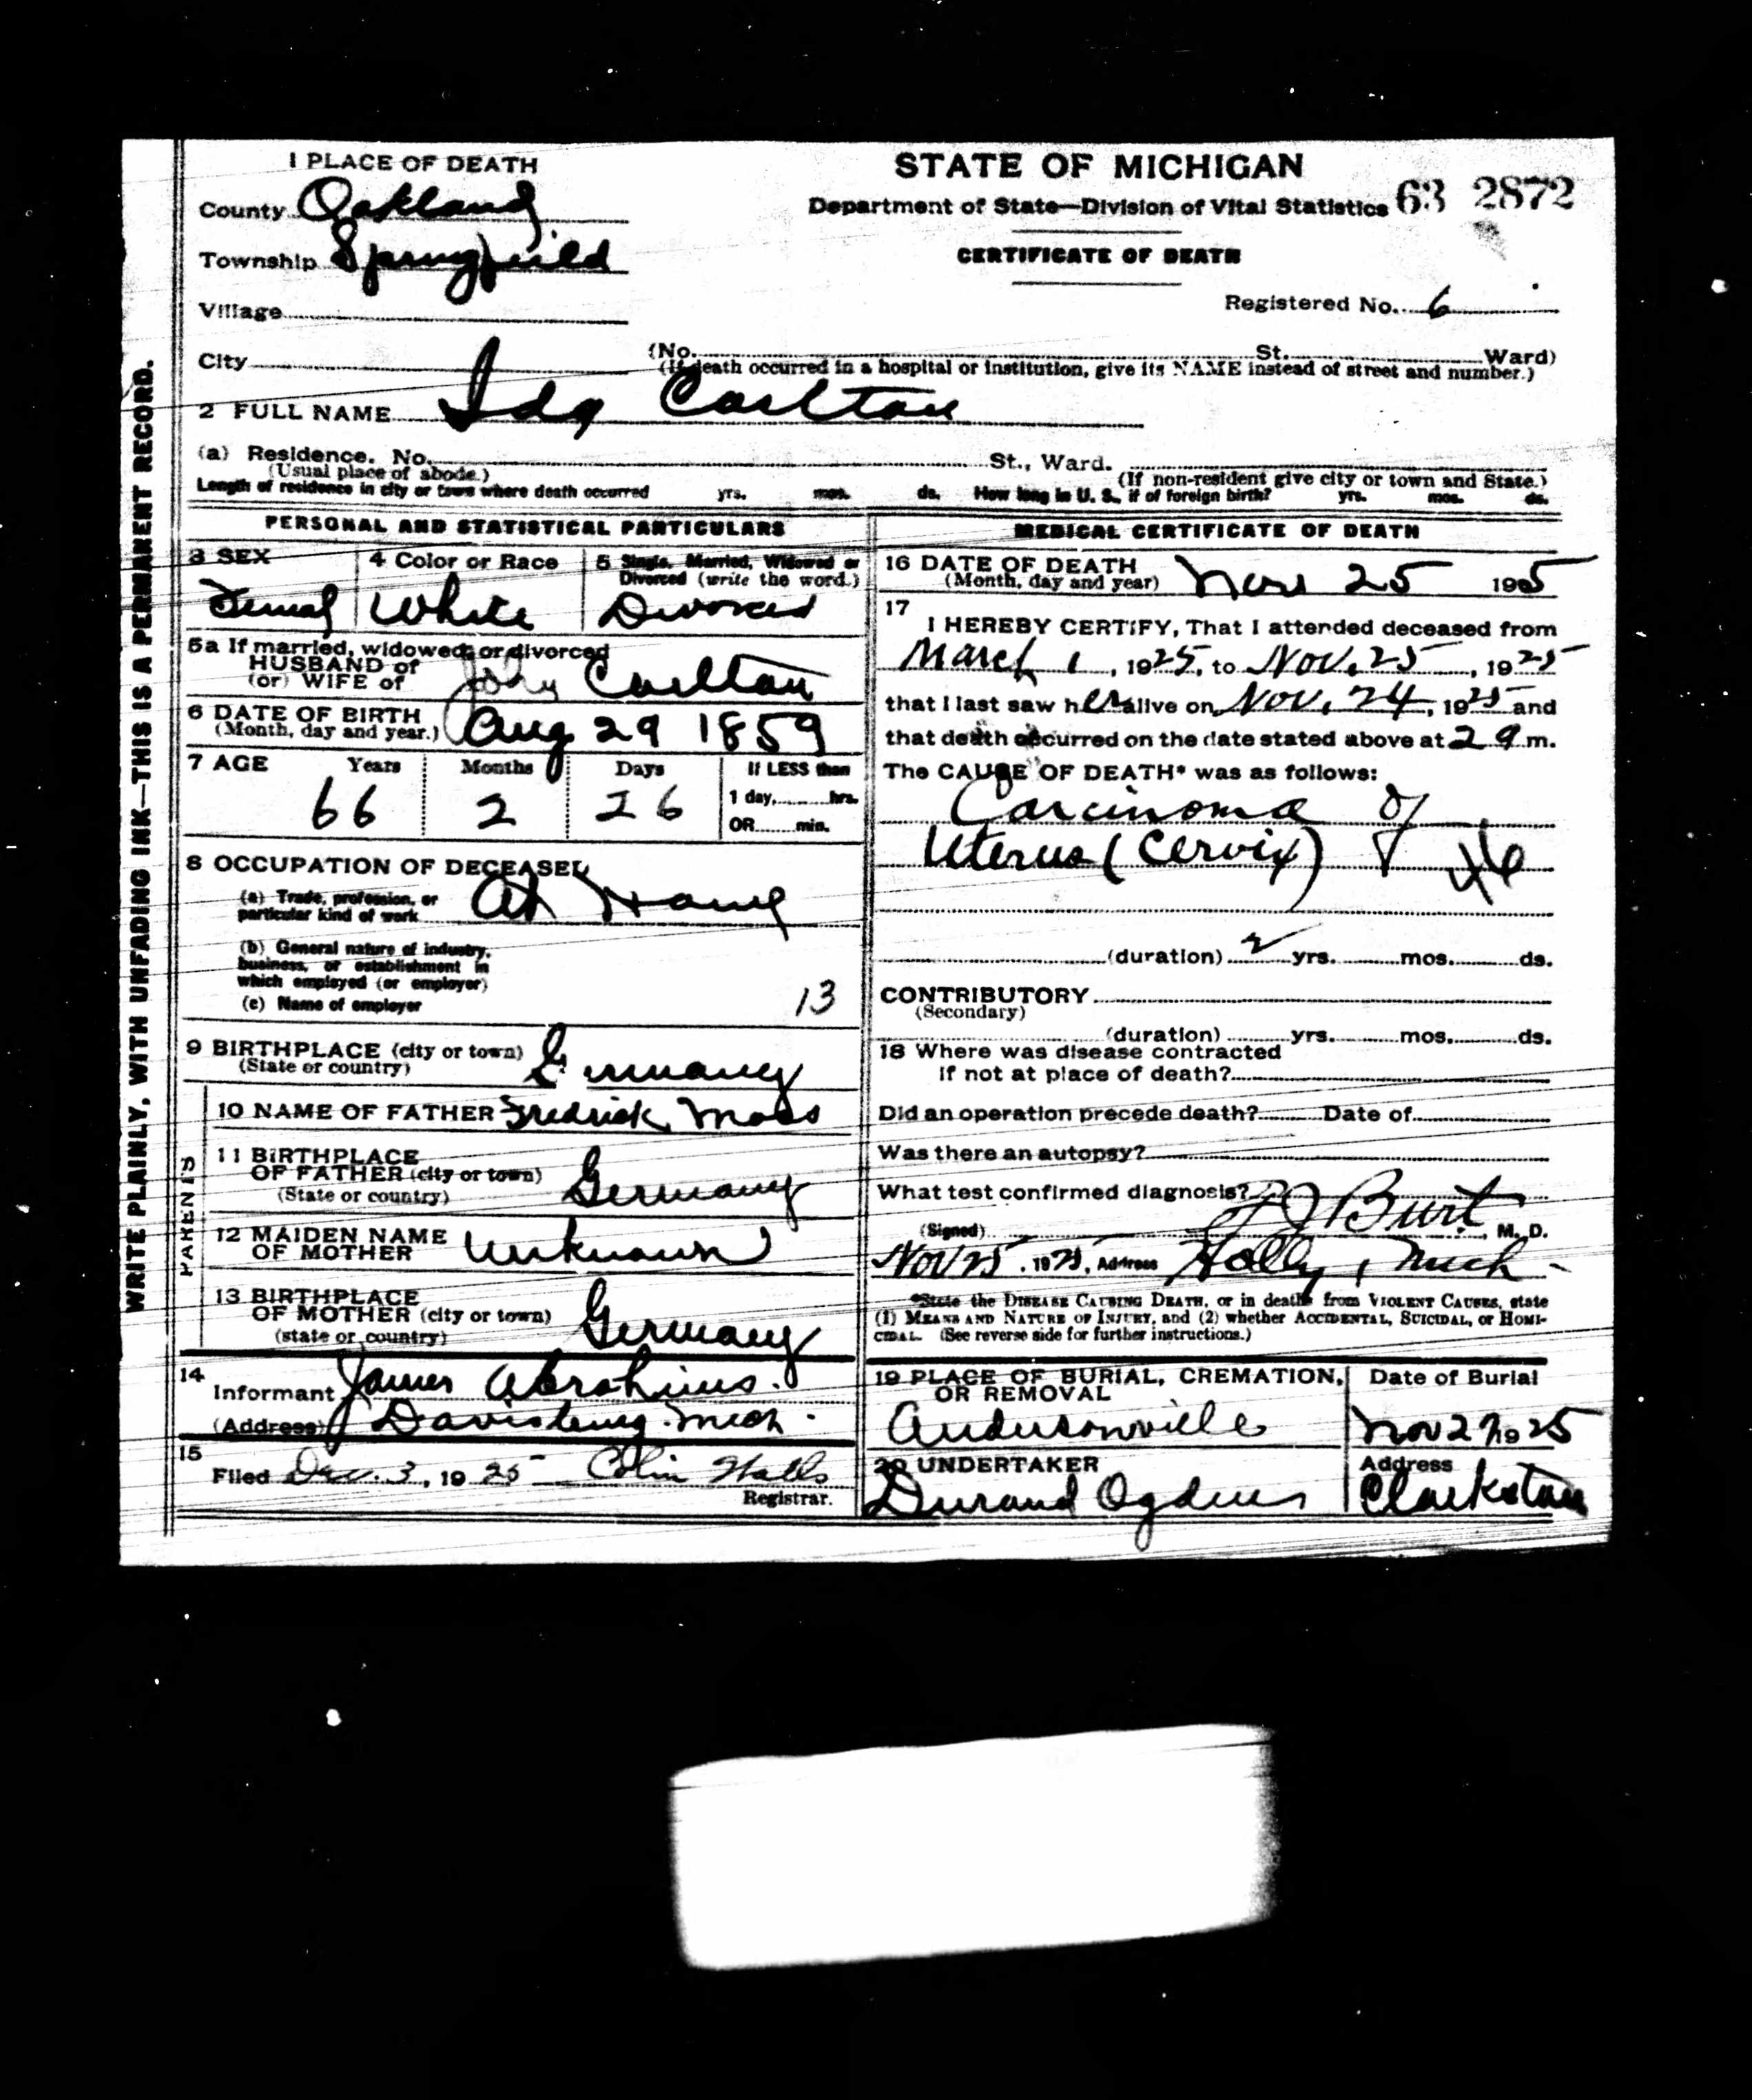 1 PLACE OF DEATH
County Oakland
Township Springfield
Village
City
STATE OF MICHIGAN
Department of State—Division of Vital Statistics 63 2872
CERTIFICATE OF DEATH
Registered No. 6
(No. St. Ward)
(If death occurred in a hospital or institution, give its NAME instead of street and number.)
2 FULL NAME Ida Carlton
(a) Residence. No. St., Ward.
(Usual place of abode.) (If non-resident give city or town and State.)
Length of residence in city or town where death occurred yrs. mos. ds. How long in U. S., if of foreign birth? yrs. mos. ds.
PERSONAL AND STATISTICAL PARTICULARS
3 SEX 4 Color or Race 5 Single, Married, Widowed or
Divorced (write the word.)
Femal White Divorced
5a If married, widowed, or divorced
HUSBAND of
(or) WIFE of John Carlton
6 DATE OF BIRTH
(Month, day and year.) Aug 29 1859
7 AGE Years Months Days If LESS than
1 day, hrs.
OR min.
66 2 26
8 OCCUPATION OF DECEASED
(a) Trade, profession, or
particular kind of work At Home
(b) General nature of industry,
business, or establishment in
which employed (or employer)
(c) Name of employer 13
9 BIRTHPLACE (city or town)
(State or country) Germany
PARENTS
10 NAME OF FATHER Fredrick Moss
11 BIRTHPLACE
OF FATHER (city or town)
(State or country) Germany
12 MAIDEN NAME
OF MOTHER Unknown
13 BIRTHPLACE
OF MOTHER (city or town)
(state or country) Germany
14
Informant James Abrahims.
(Address) Davisburg. Mich.
15
Filed Dec. 3, 1925 Colin Walls
Registrar.
MEDICAL CERTIFICATE OF DEATH
16 DATE OF DEATH
(Month, day and year) Nov 25 1925
17
I HEREBY CERTIFY, That I attended deceased from
March 1, 1925, to Nov. 25, 1925
that I last saw her alive on Nov. 24, 1925 and
that death occurred on the date stated above at 2 a m.
The CAUSE OF DEATH* was as follows:
Carcinoma of
Uterus (Cervix) 46
(duration) 2 yrs. mos. ds.
CONTRIBUTORY
(Secondary)
(duration) yrs. mos. ds.
18 Where was disease contracted
if not at place of death?
Did an operation precede death? Date of
Was there an autopsy?
What test confirmed diagnosis?
(Signed) Burt, M. D.
Nov 25, 1925, Address Holly, Mich
*State the DISEASE CAUSING DEATH, or in deaths from VIOLENT CAUSES, state
(1) MEANS AND NATURE OF INJURY, and (2) whether ACCIDENTAL, SUICIDAL, or HOMI-
CIDAL. (See reverse side for further instructions.)
19 PLACE OF BURIAL, CREMATION,
OR REMOVAL
Andersonville
Date of Burial
Nov 27 1925
20 UNDERTAKER
Durand Ogdens
Address
Clarkston
WRITE PLAINLY, WITH UNFADING INK—THIS IS A PERMANENT RECORD.